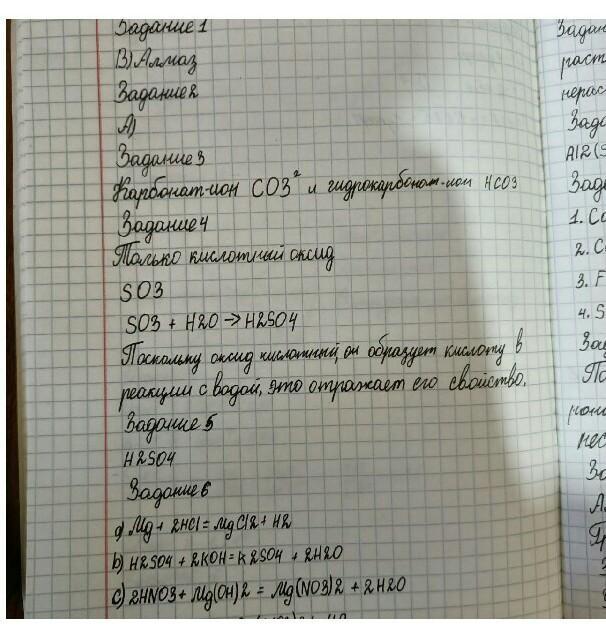 Задание 1
В) Алмаз
Задание 2
А)
Задание 3
Карбонат-ион CO3² и гидрокарбонат-ион HCO3
Задание 4
Только кислотный оксид
SO3
SO3 + H2O → H2SO4
Поскольку оксид кислотный, он образует кислоту в
реакции с водой, это отражает его свойство.
Задание 5
H2SO4
Задание 6
a) Mg + 2HCl = MgCl2 + H2
b) H2SO4 + 2KOH = K2SO4 + 2H2O
c) 2HNO3 + Mg(OH)2 = Mg(NO3)2 + 2H2O
Задан
раст
нерас
Зада
Al2(S
Зада
1. Ca
2. C
3. F
4. S
За
По
нес
За